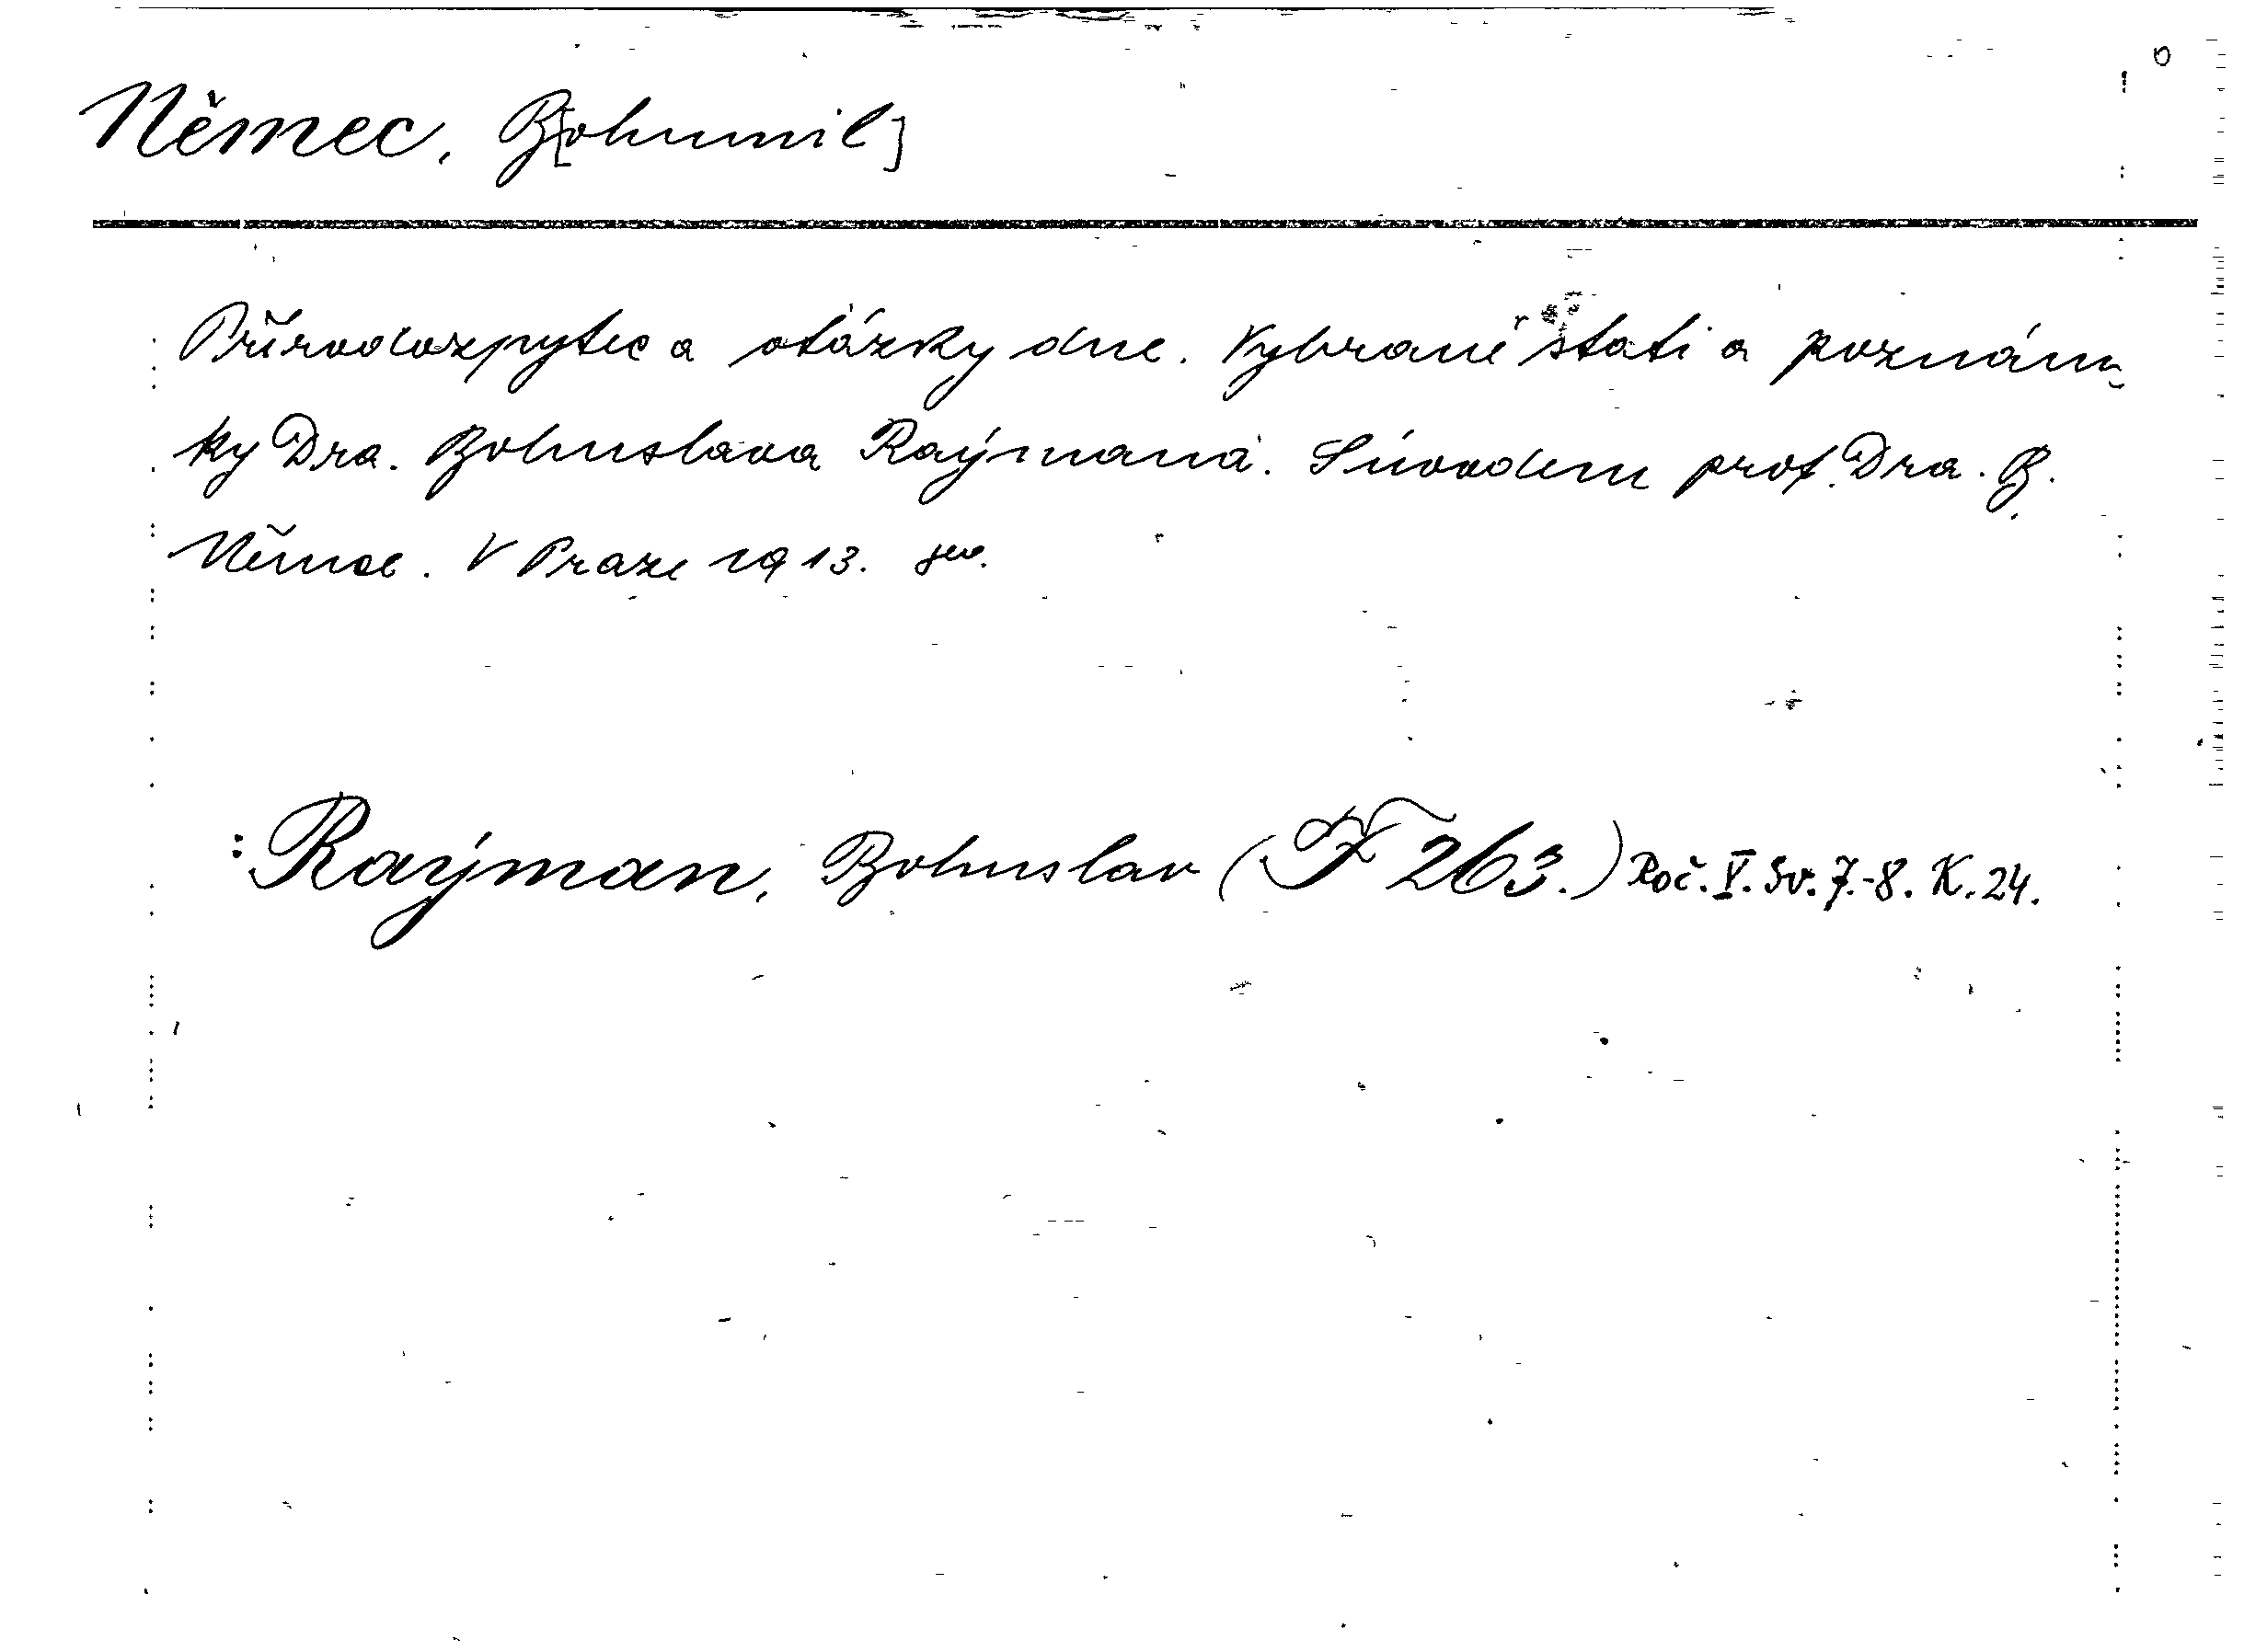 Němec, B[ohumil]
Přírodozpytec a otázky dne. Vybrané stati a poznám-
ky Dra. Bohuslava Raýmana. S úvodem prof. Dra. B.
Němce. V Praze 1913.
: Raýman, Bohuslav (F 263.) Roč. V. Sv. 7.-8. K. 24.